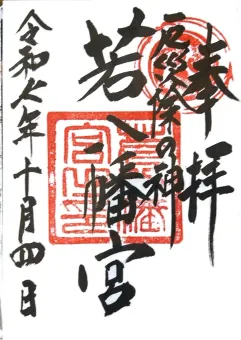 奉拝
厄災除の神
若八幡宮
令和六年十月四日